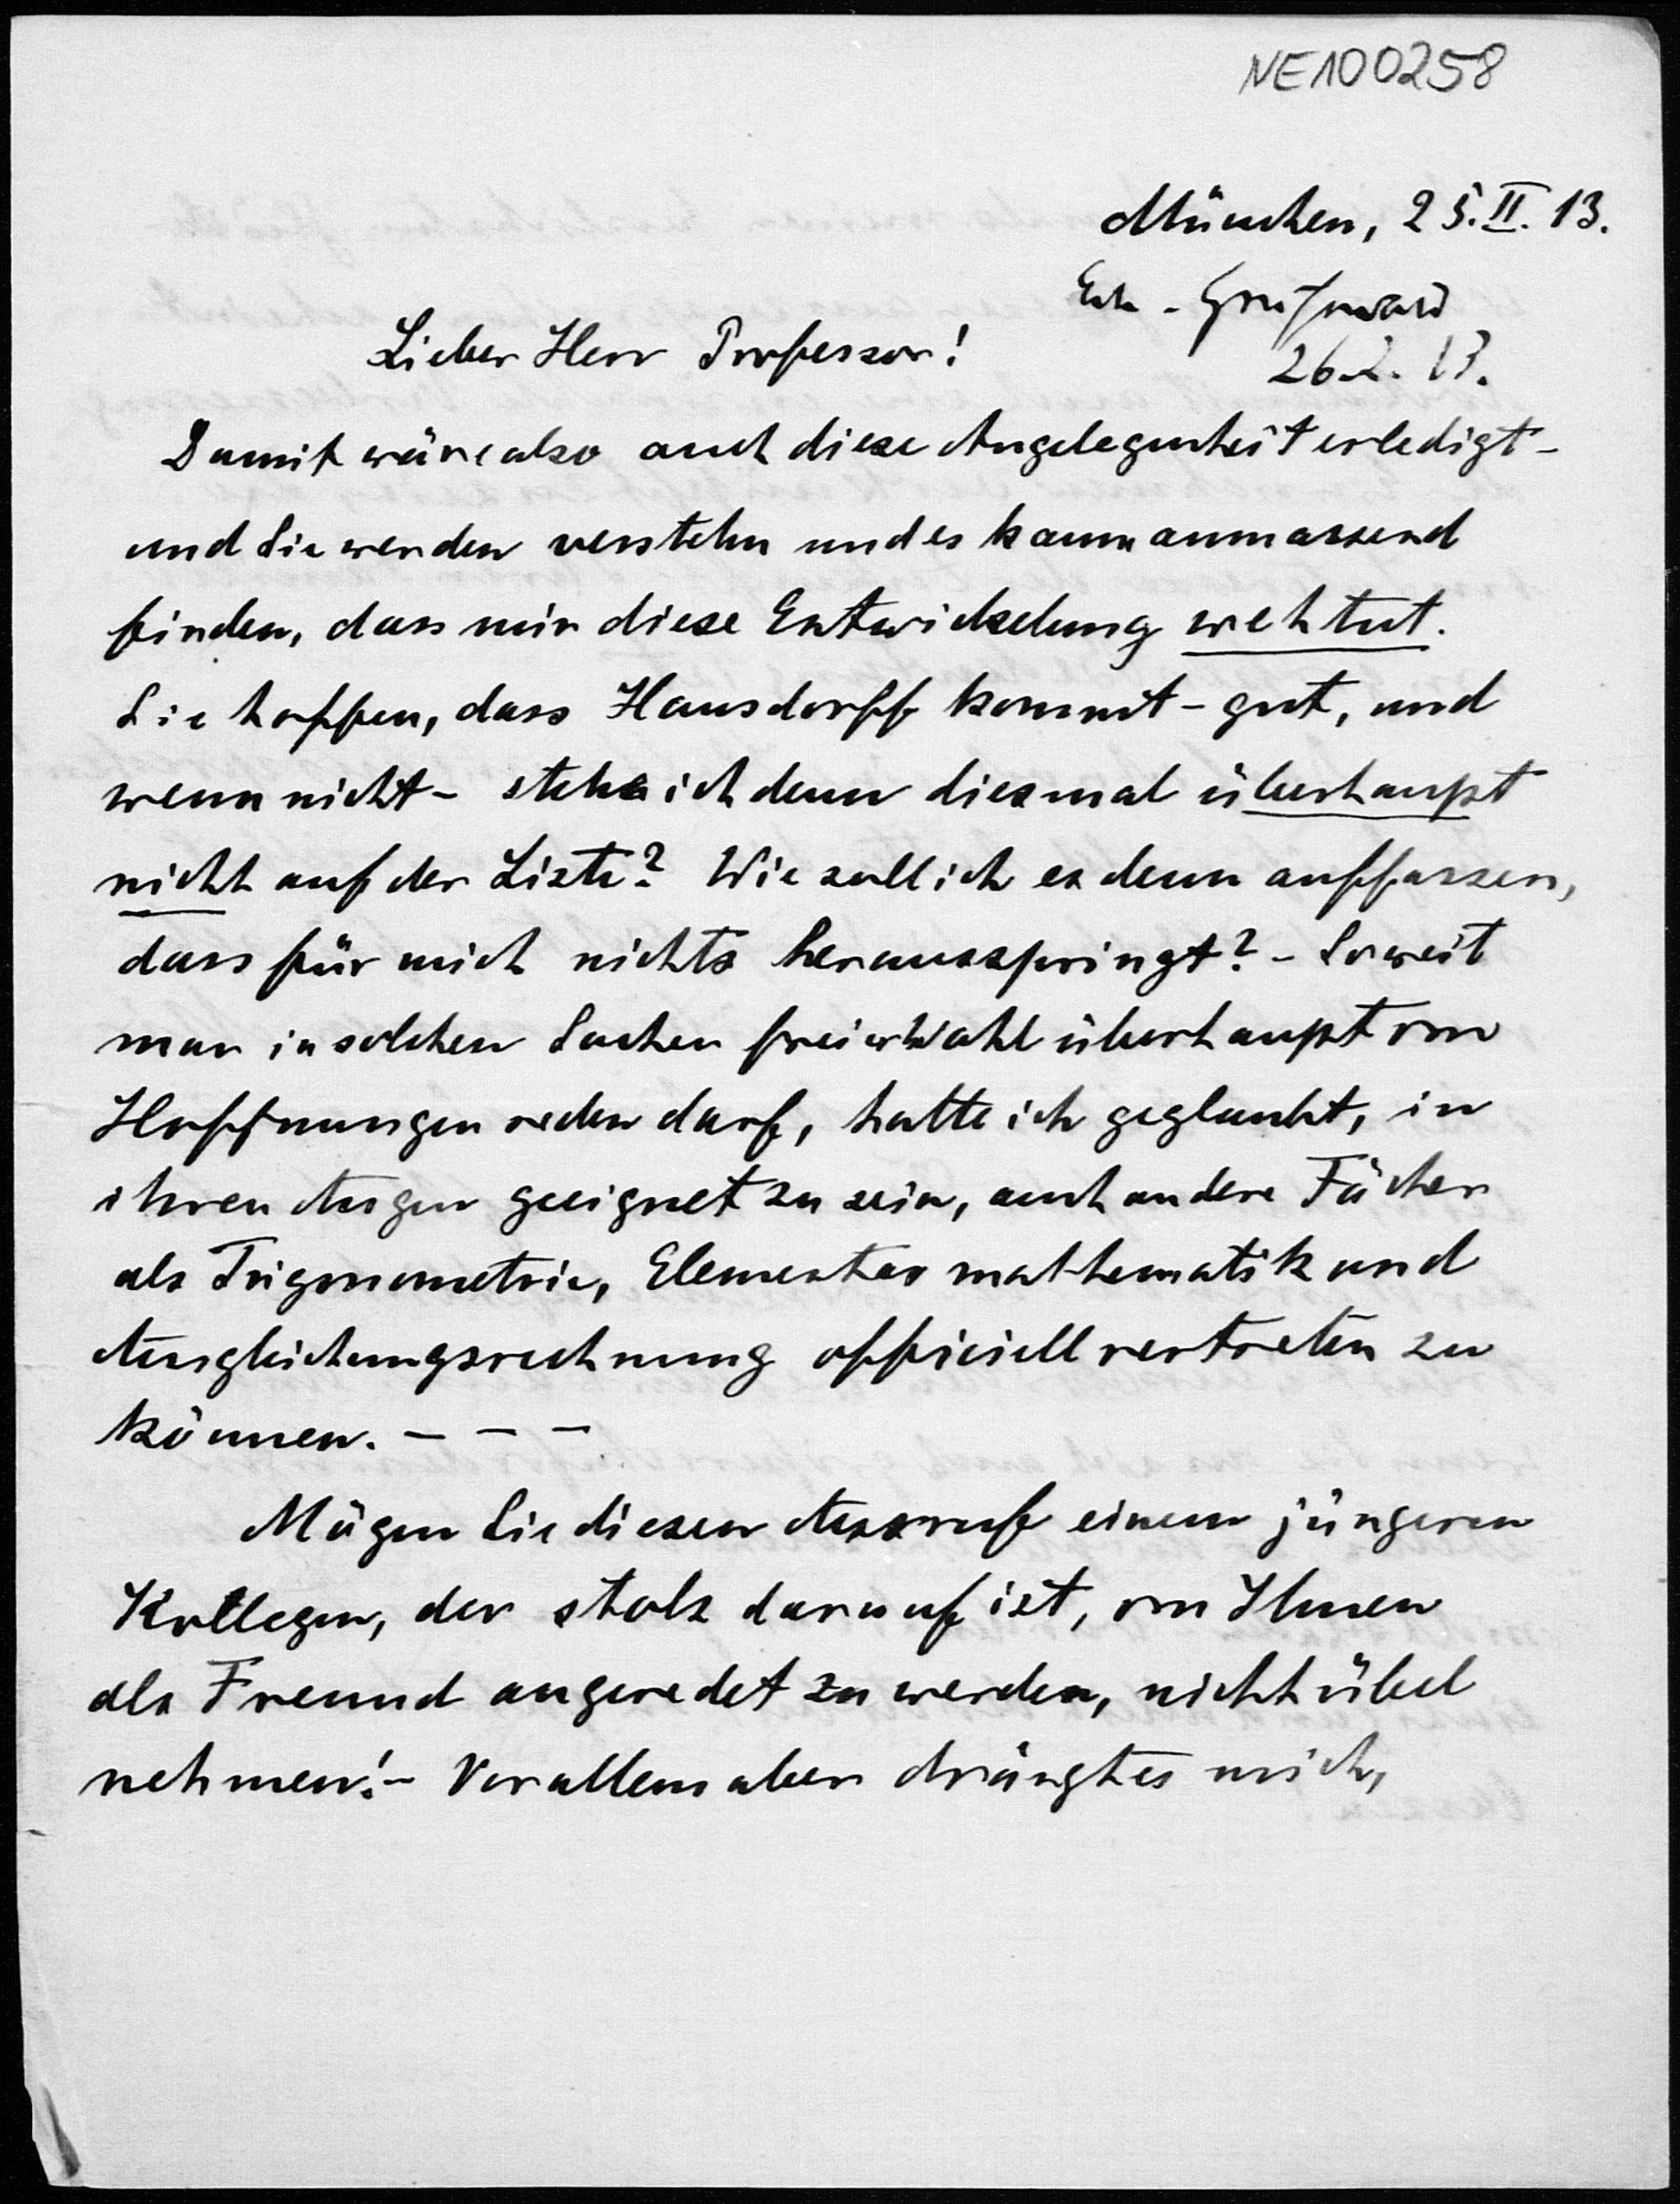 NE100258
München, 25.II.13.
Erh. - Greifswald
26.2.13.
Lieber Herr Professor!
Damit wäre also auch diese Angelegenheit erledigt -
und Sie werden verstehn und es kaum anmassend
finden, dass mir diese Entwickelung weh tut.
Sie hoffen, dass Hausdorff kommt - gut, und
wenn nicht - stehe ich denn diesmal überhaupt
nicht auf der Liste? Wie soll ich es denn auffassen,
dass für mich nichts herausspringt? - Soweit
man in solchen Sachen freier Wahl überhaupt von
Hoffnungen reden darf, hatte ich geglaubt, in
ihren Augen geeignet zu sein, auch andere Fächer
als Trigonometrie, Elementarmathematik und
Ausgleichungsrechnung officiell vertreten zu
können. - - -
Mögen Sie diesen Ausruf einem jüngeren
Kollegen, der stolz darauf ist, von Ihnen
als Freund angeredet zu werden, nicht übel
nehmen! - Vor allem aber drängt es mich,